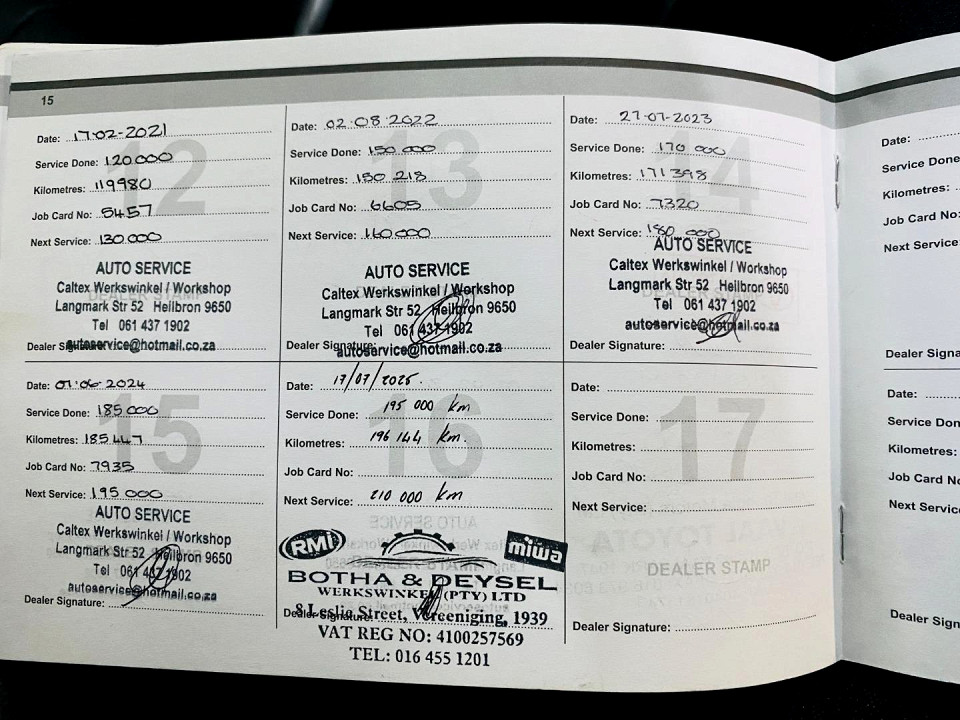 15
12
Date: 17.02-2021
Service Done: 120.000
Kilometres: 119980
Job Card No: 5457
Next Service: 130.000
DEALER STAMP
AUTO SERVICE
Caltex Werkswinkel / Workshop
Langmark Str 52 Heilbron 9650
Tel 061 437 1902
autoservice@hotmail.co.za
Dealer Signature:
13
Date: 02.08.2022
Service Done: 150.000
Kilometres: 150 218
Job Card No: 6605
Next Service: 160.000
AUTO SERVICE
Caltex Werkswinkel / Workshop
Langmark Str 52 Heilbron 9650
Tel 061 437 1902
autoservice@hotmail.co.za
Dealer Signature:
14
Date: 27-07-2023
Service Done: 170 000
Kilometres: 171398
Job Card No: 7320
Next Service: 180 000
DEALER STAMP
AUTO SERVICE
Caltex Werkswinkel / Workshop
Langmark Str 52 Heilbron 9650
Tel 061 437 1902
autoservice@hotmail.co.za
Dealer Signature:
15
Date: 01.06.2024
Service Done: 185 000
Kilometres: 185 447
Job Card No: 7935
Next Service: 195 000
AUTO SERVICE
Caltex Werkswinkel / Workshop
Langmark Str 52 Heilbron 9650
Tel 061 437 1902
autoservice@hotmail.co.za
Dealer Signature:
16
Date: 17/07/2025.
Service Done: 195 000 km
Kilometres: 196 144 km.
Job Card No:
Next Service: 210 000 km
RMI
miwa
BOTHA & DEYSEL
WERKSWINKEL (PTY) LTD
8 Leslie Street, Vereeniging, 1939
VAT REG NO: 4100257569
TEL: 016 455 1201
Dealer Signature:
17
Date:
Service Done:
Kilometres:
Job Card No:
Next Service:
DEALER STAMP
Dealer Signature:
Date:
Service Done
Kilometres:
Job Card No:
Next Service
Dealer Signa
Date:
Service Don
Kilometres:
Job Card No
Next Servic
Dealer Sign